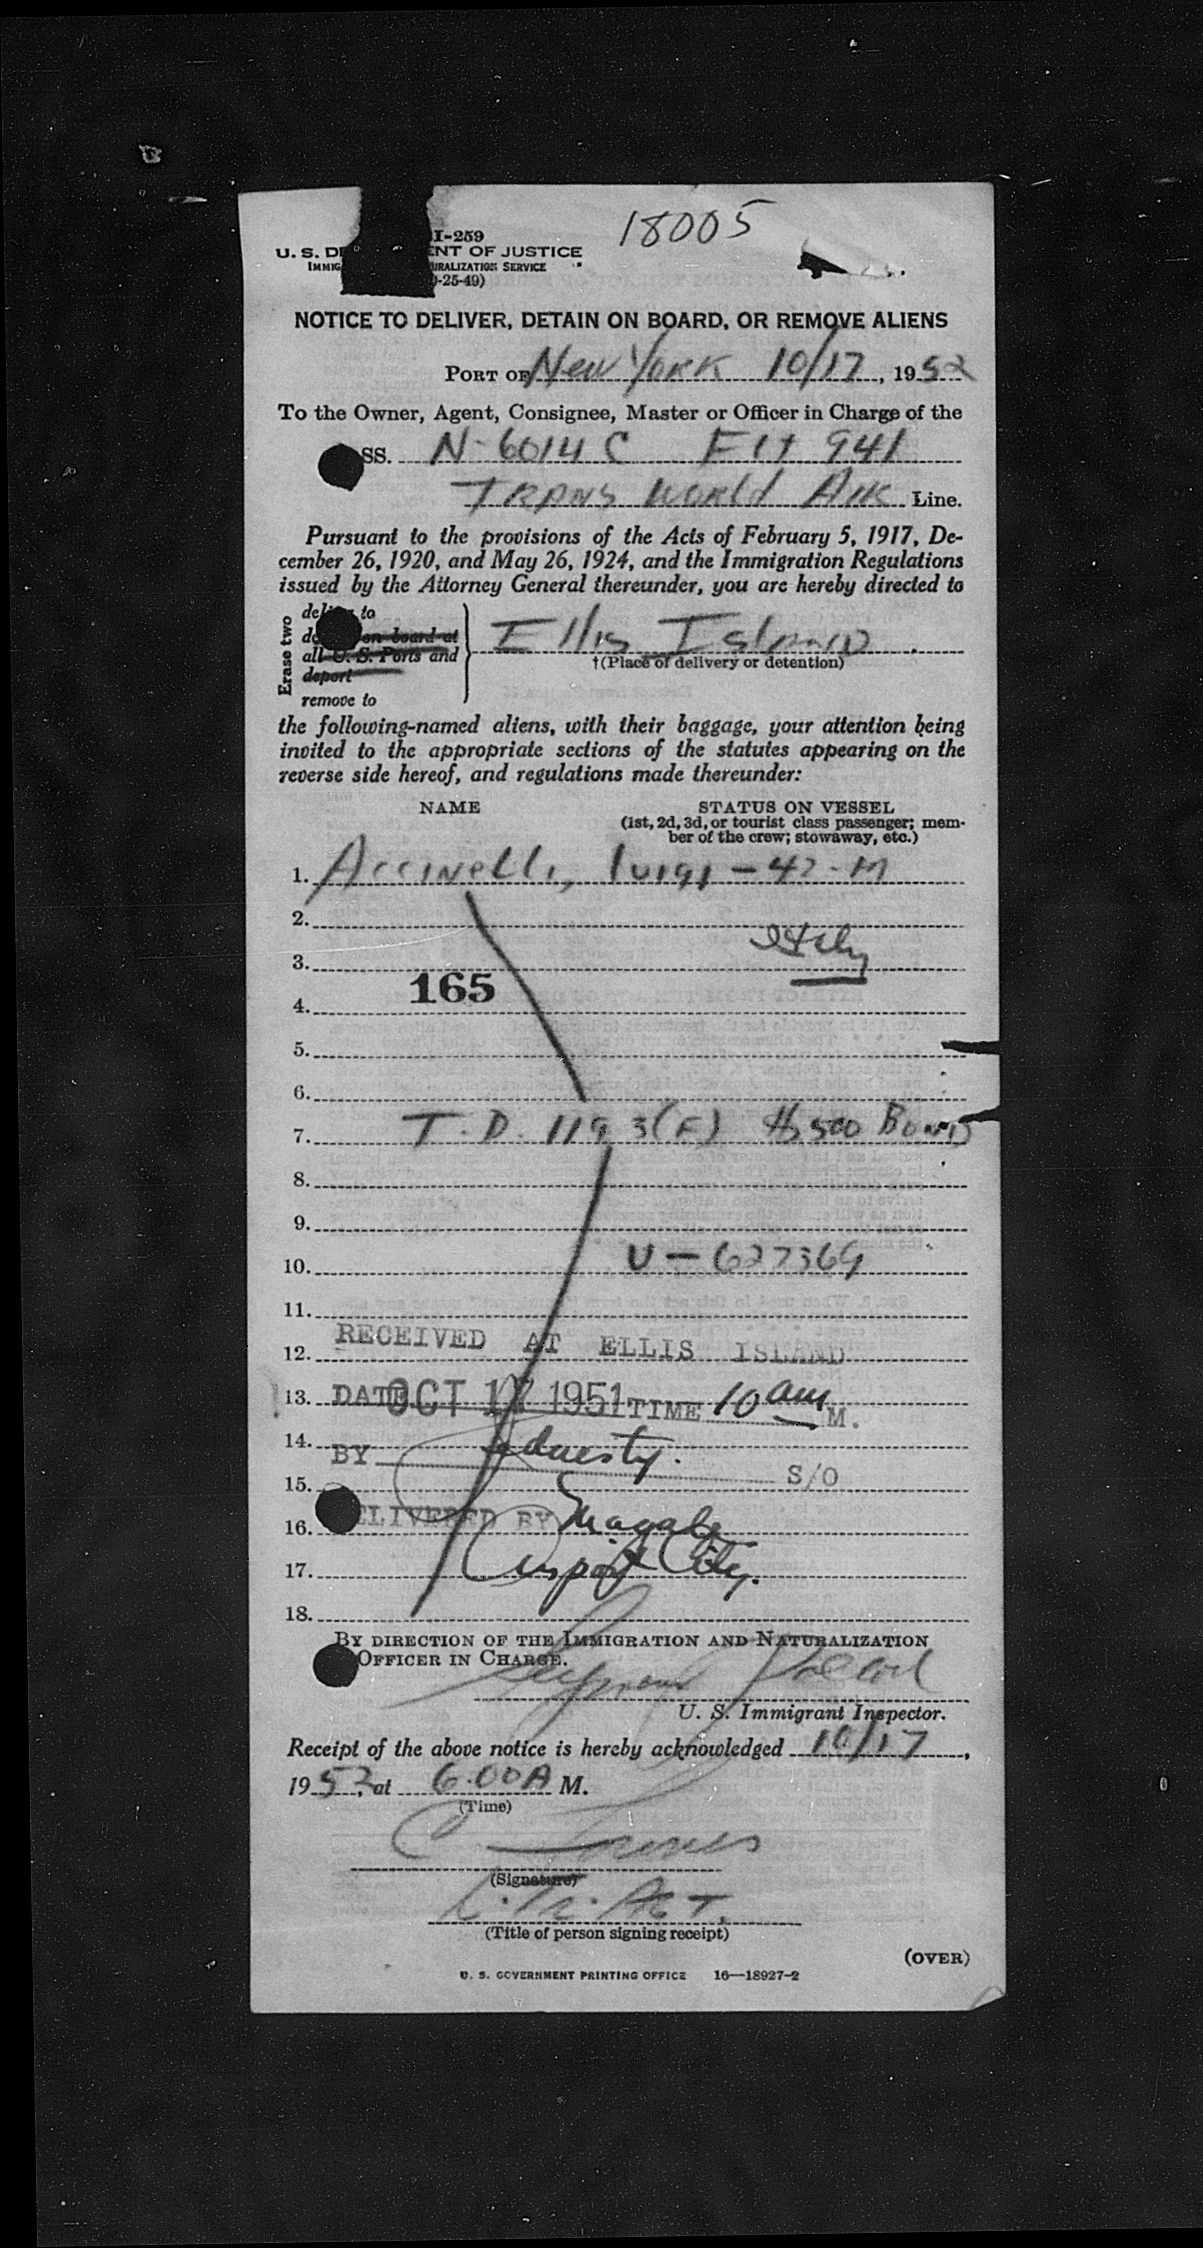 18005
I-259
U. S. D ENT OF JUSTICE
IMMIG URALIZATION SERVICE
-25-49)
NOTICE TO DELIVER, DETAIN ON BOARD, OR REMOVE ALIENS
PORT OF New York 10/17, 1952
To the Owner, Agent, Consignee, Master or Officer in Charge of the
SS. N-6014C Flt 941
Trans World Air Line.
Pursuant to the provisions of the Acts of February 5, 1917, De-
cember 26, 1920, and May 26, 1924, and the Immigration Regulations
issued by the Attorney General thereunder, you are hereby directed to
Erase two
to
on board at
all U. S. Ports and
deport
remove to
Ellis Island
†(Place of delivery or detention)
the following-named aliens, with their baggage, your attention being
invited to the appropriate sections of the statutes appearing on the
reverse side hereof, and regulations made thereunder:
NAME STATUS ON VESSEL
(1st, 2d, 3d, or tourist class passenger; mem-
ber of the crew; stowaway, etc.)
1. Accinelli, Luigi - 42 - M
2.
Italy
3.
165
4.
5.
6.
7. T. D. 1193(F) $500 Bond
8.
9.
10. U - 627369
11.
12. RECEIVED AT ELLIS ISLAND
13. DATE OCT 17 1951 TIME 10 am M.
14.
BY S/O
15.
16. ELIVERED BY
17. Airport City.
18.
BY DIRECTION OF THE IMMIGRATION AND NATURALIZATION
OFFICER IN CHARGE.
U. S. Immigrant Inspector.
Receipt of the above notice is hereby acknowledged 10/17,
1952, at 6:00 A M.
(Time)
(Signature)
(Title of person signing receipt)
(OVER)
U. S. GOVERNMENT PRINTING OFFICE 16—18927-2